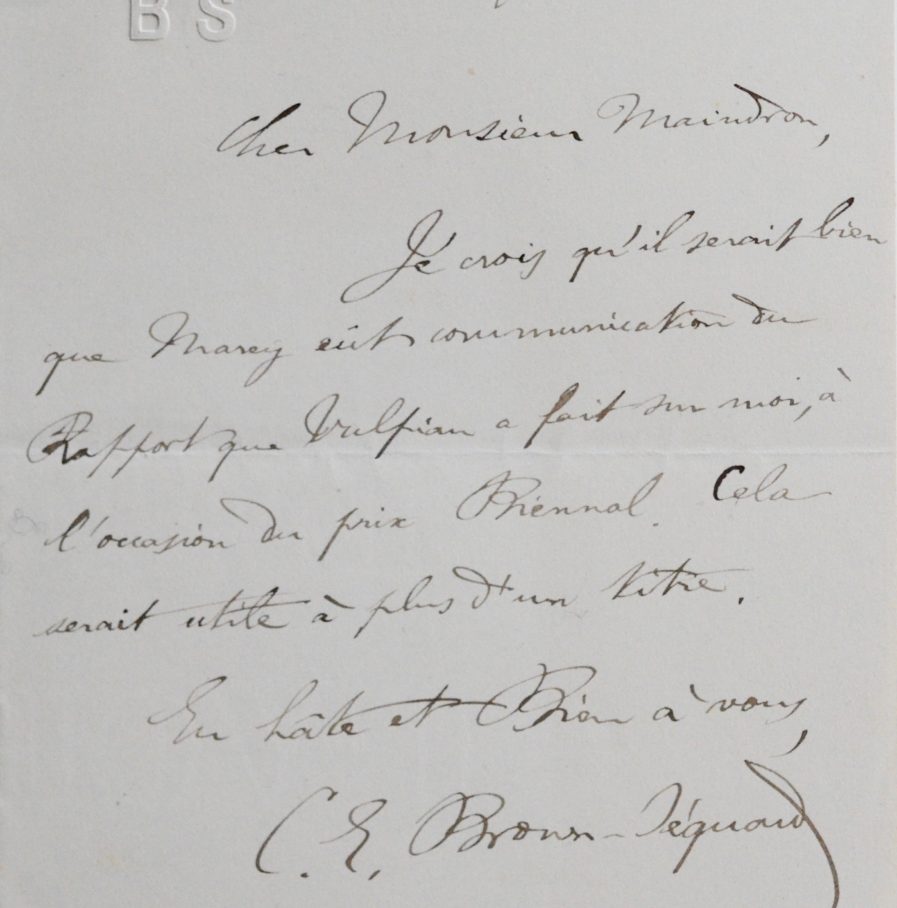 B S
Cher Monsieur Maindron,
Je crois qu'il serait bien
que Marey eût communication du
Rapport que Vulpian a fait sur moi, à
l'occasion du prix Biennal. Cela
serait utile à plus d'un titre.
En hâte et Bien à vous,
C. E. Brown-Séquard